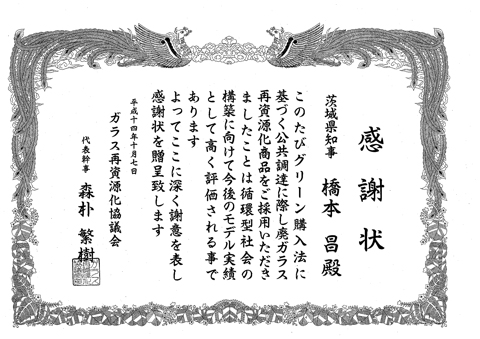 感謝状
茨城県知事 橋本 昌殿
このたびグリーン購入法に
基づく公共調達に際し廃ガラス
再資源化商品をご採用いただき
ましたことは循環型社会の
構築に向けて今後のモデル実績
として高く評価される事で
あります
よってここに深く謝意を表し
感謝状を贈呈致します
平成十四年十月七日
ガラス再資源化協議会
代表幹事 森朴 繁樹